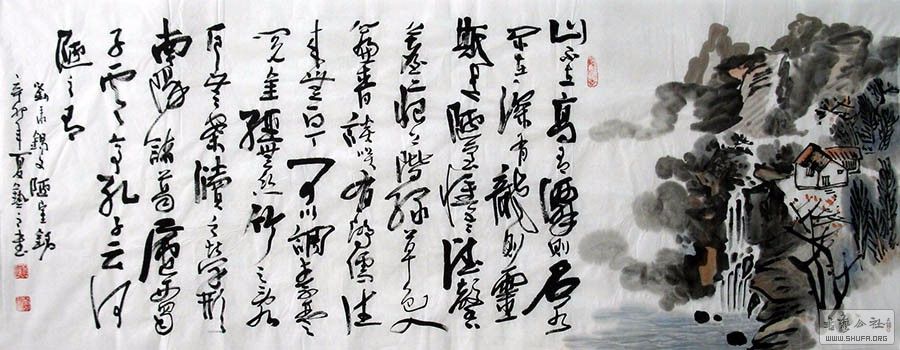 山不在高有僊則名水
不在深有龍則靈
斯是陋室惟吾德馨
苔痕上階绿草色入
簾青談笑有鴻儒往
来無白丁可以調素琴
閲金經無絲竹之亂
耳無案牘之劳形
南陽諸葛廬西蜀
子雲亭孔子云何
陋之有
劉禹錫文陋室銘
辛卯年夏之書
公社
WWW.SHUFA.ORG